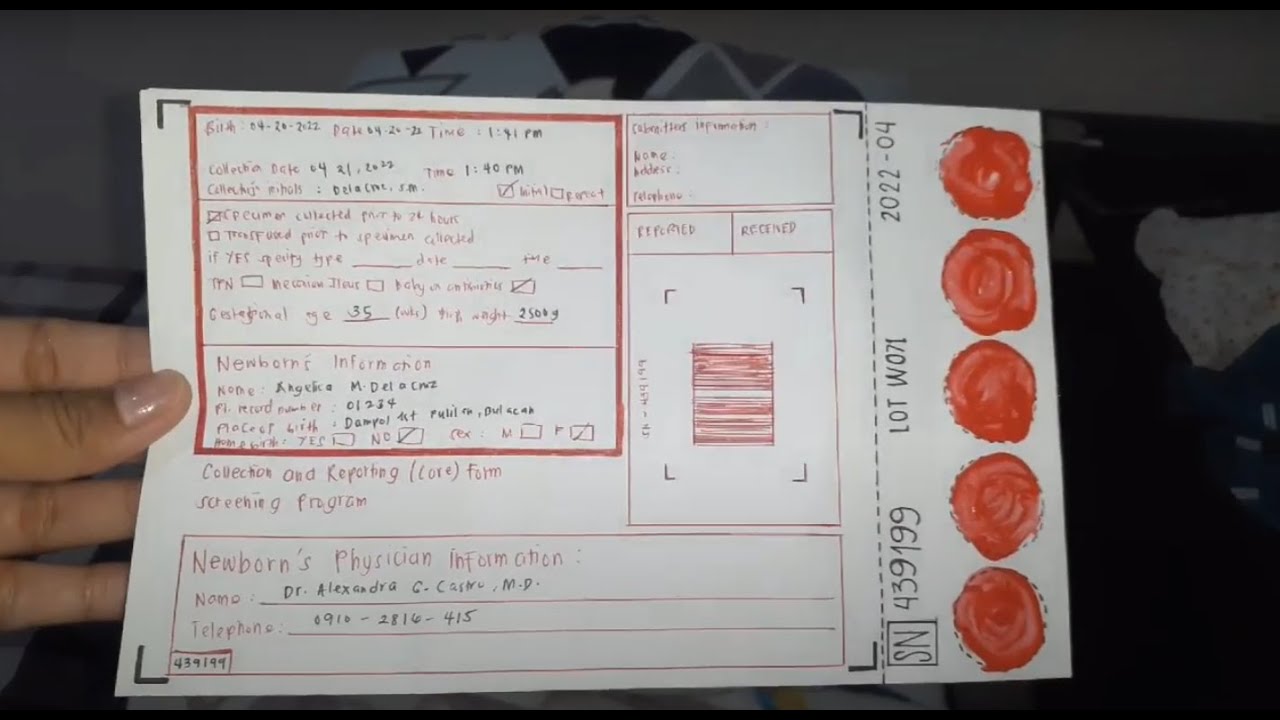 Birth: 04-20-2022 Date 04-20-22 Time : 1:41 PM
Collection Date 04 21, 2022 Time 1:40 PM
Collector's initials : Dela Cruz, S.M. Initial Repeat
Specimen collected prior to 24 hours
Transfused prior to specimen collected
if YES specify type date time
TPN Meconium Ileus Baby on antibiotics
Gestational age 35 (wks) weight 2500g
Newborn's Information
Name : Angelica M. Dela Cruz
Pt. record number : 01234
Place of birth : Dampol 1st Pulilan, Bulacan
Home birth: YES NO Sex : M F
Collection and Reporting (Core) Form
Screening Program
Newborn's Physician Information :
Name : Dr. Alexandra G. Castro, M.D.
Telephone: 0910 - 2816 - 415
439199
Submitters information :
Name :
Address :
Telephone :
REPORTED RECEIVED
SN - 439199
SN 439199 LOT W071 2022-04